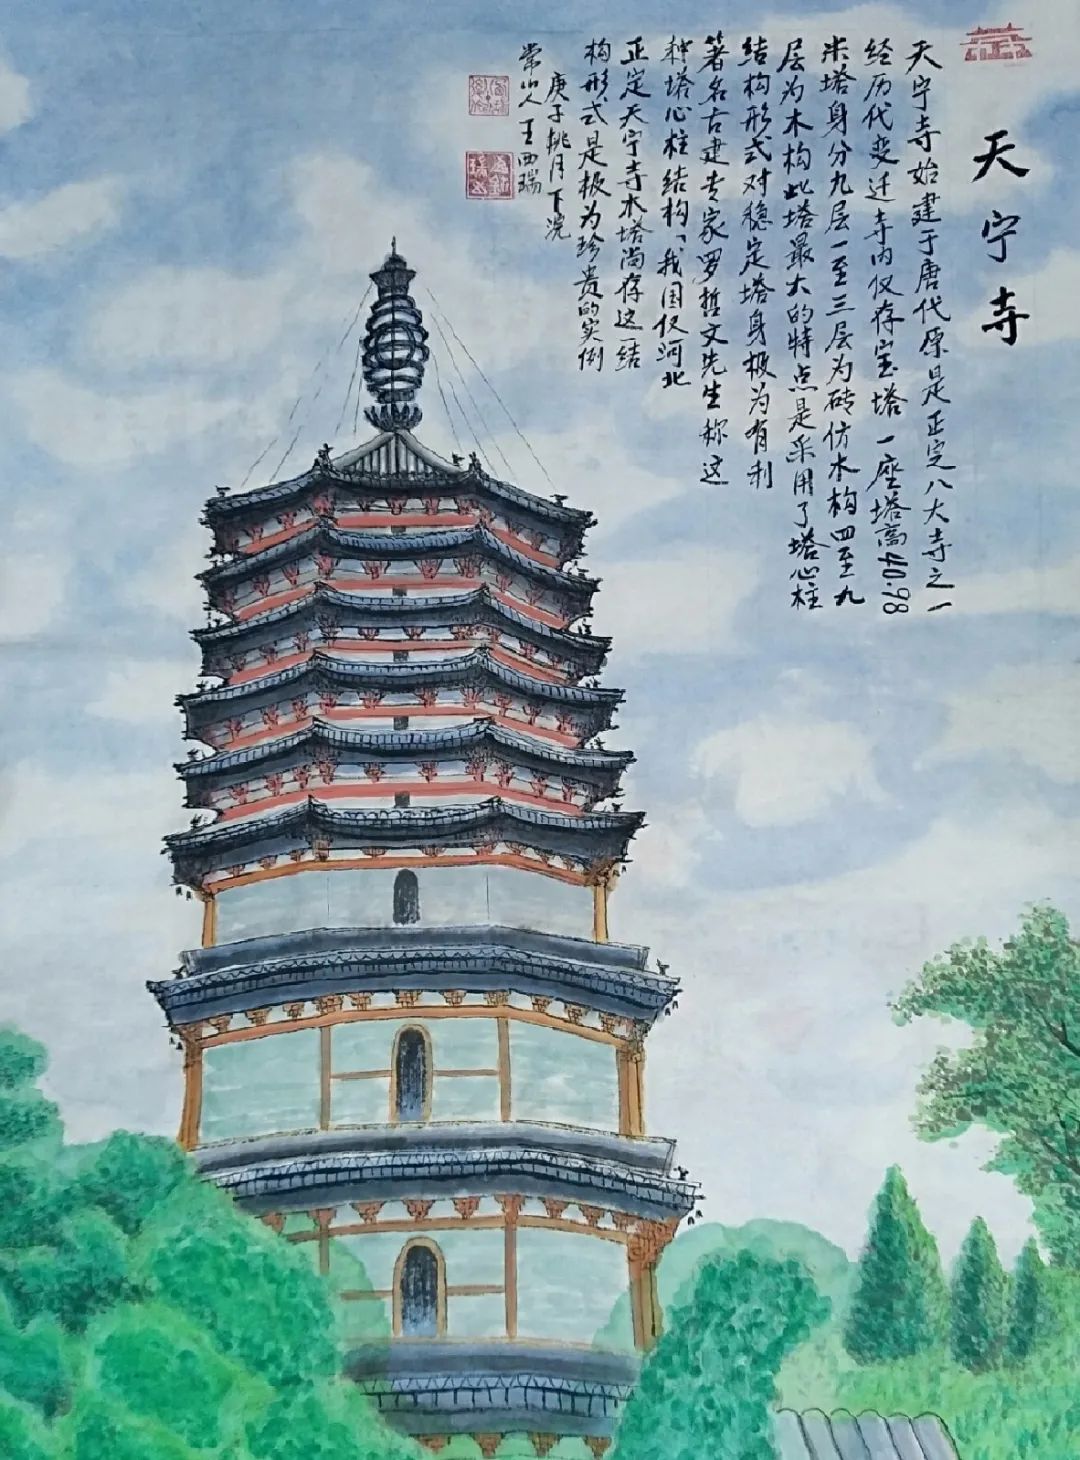 天宁寺
天宁寺始建于唐代原是正定八大寺之一
经历代变迁寺内仅存宝塔一座塔高40.98
米塔身分九层一至三层为砖仿木构四至九
层为木构此塔最大的特点是采用了塔心柱
结构形式对稳定塔身极为有利
著名古建专家罗哲文先生称这
种塔心柱结构「我国仅河北
正定天宁寺木塔尚存这一结
构形式是极为珍贵的实例
庚子桃月下浣
常山人王西瑞